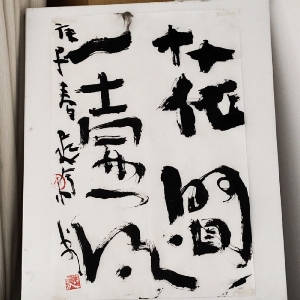 花間
一壺酒
庚子春